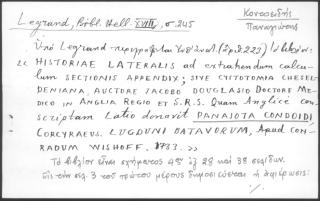 Legrand, Bibl. Hell. XVIII, σ. 245
Κονοειδής
Παναγιώτης
Ὑπὸ Legrand περιγράφεται
"HISTORIAE LATERALIS ad extrahendum calcu-
lum SECTIONIS APPENDIX; SIVE CYSTOTOMIA CHESEL-
DENIANA, AUCTORE JACOBO DOUGLASIO DOCTORE ME-
DICO IN ANGLIA REGIO ET S.R.S. Quam Anglice con-
scriptam Latio donavit PANAJOTA CONDOIDI,
CORCYRAEUS. LUGDUNI BATAVORUM, Apud CON-
RADUM WISHOFF. 1733. »
Τὸ βιβλίον εἶναι σχήματος 4ου ἐξ 28 καὶ 38 σελίδων.
Εἰς τὴν σελ. 3 τοῦ πρώτου μέρους δημοσιεύεται ἡ ἀφιέρωσις: